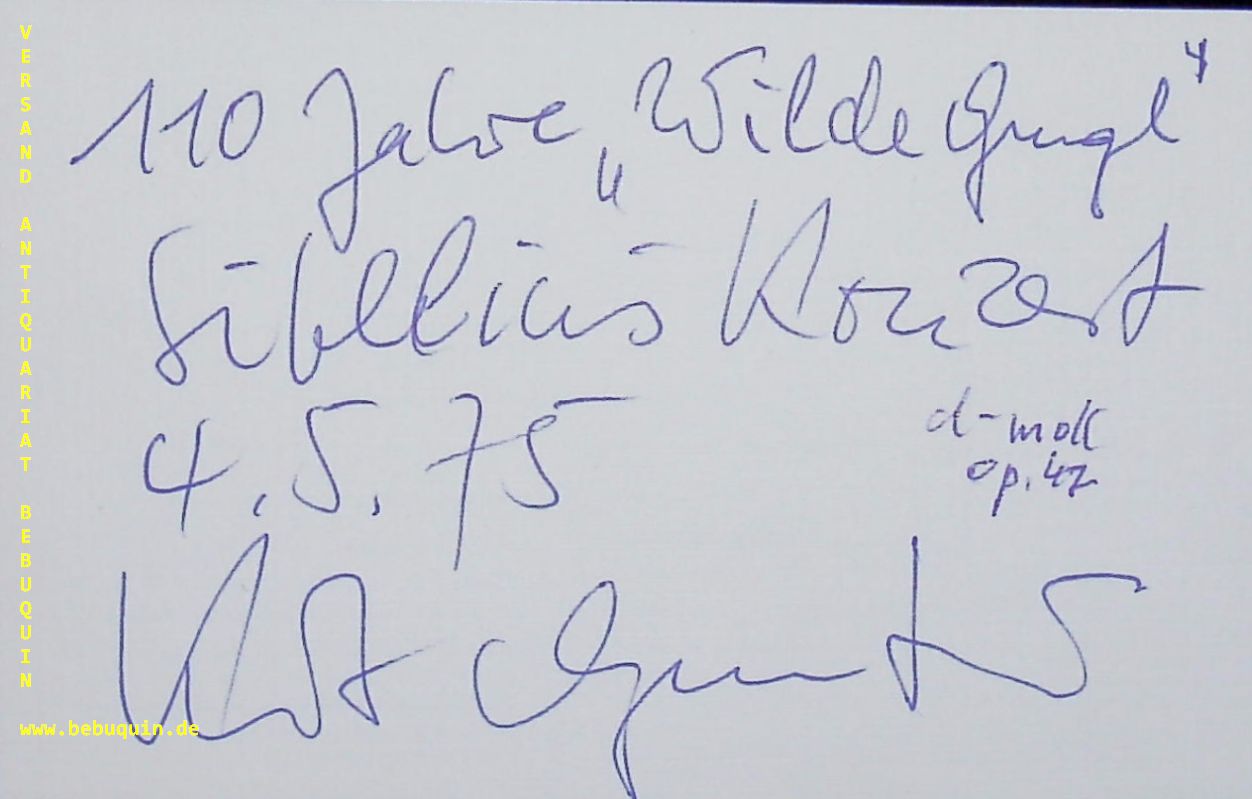 VERSAND ANTIQUARIAT BEBUQUIN
110 Jahre „Wilde Gungl“
Sibellius Konzert
4.5.75
d-moll
op. 47
Kurt Guntner
www.bebuquin.de